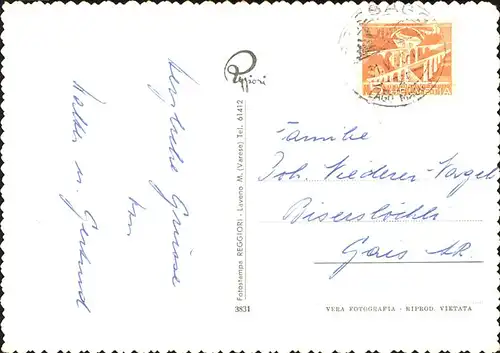 herzliche Grüsse
von
Walter u. Gertrud
Reggiori
Fotostampa REGGIORI - Laveno M. (Varese) Tel. 61412
3831
HELVETIA
Familie
Joh. Niederer-Vogel
Gais AR.
VERA FOTOGRAFIA - RIPROD. VIETATA